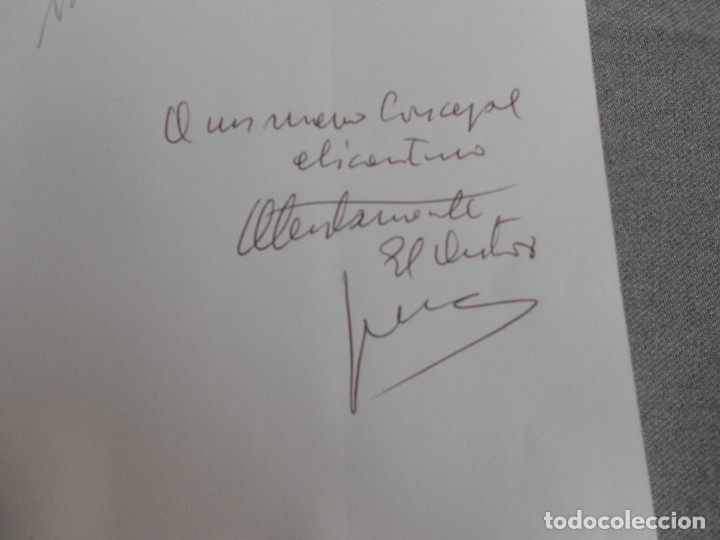 A un nuevo Concejal
alicantino
Atentamente
El Autor
todocoleccion
todocoleccion.net